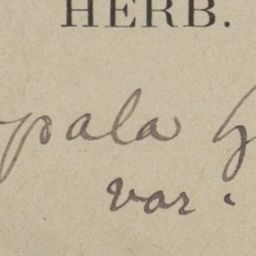 HERB.
pala
var.